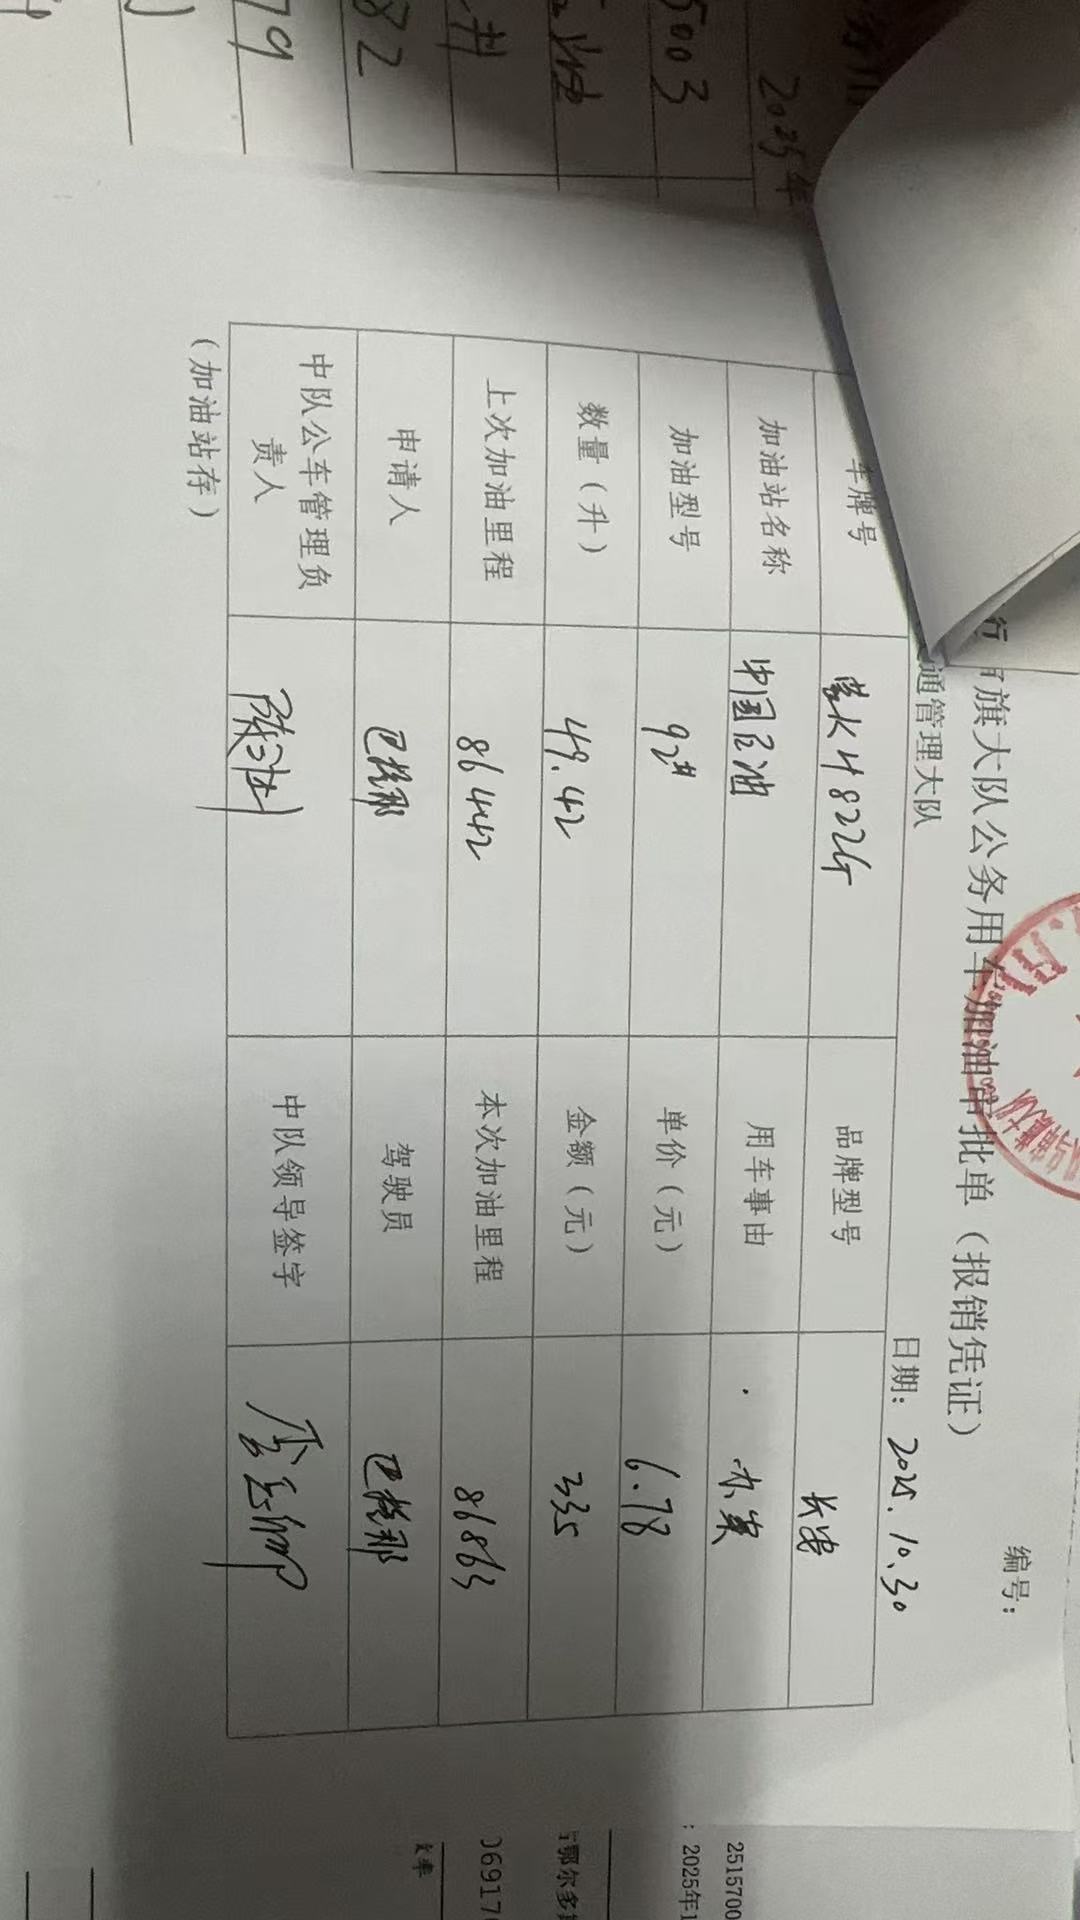 编号：
旗大队公务用车加油审批单（报销凭证）
通管理大队 日期：2025.10.30
车牌号 蒙K H822G 品牌型号 长安
加油站名称 中国石油 用车事由 办案
加油型号 92# 单价（元） 6.78
数量（升） 49.42 金额（元） 335
上次加油里程 86442 本次加油里程 86863
申请人 驾驶员
中队公车管理负责人 中队领导签字
（加油站存）
2025年
5003
82
79
2515700
：2025年1
鄂尔多
06917